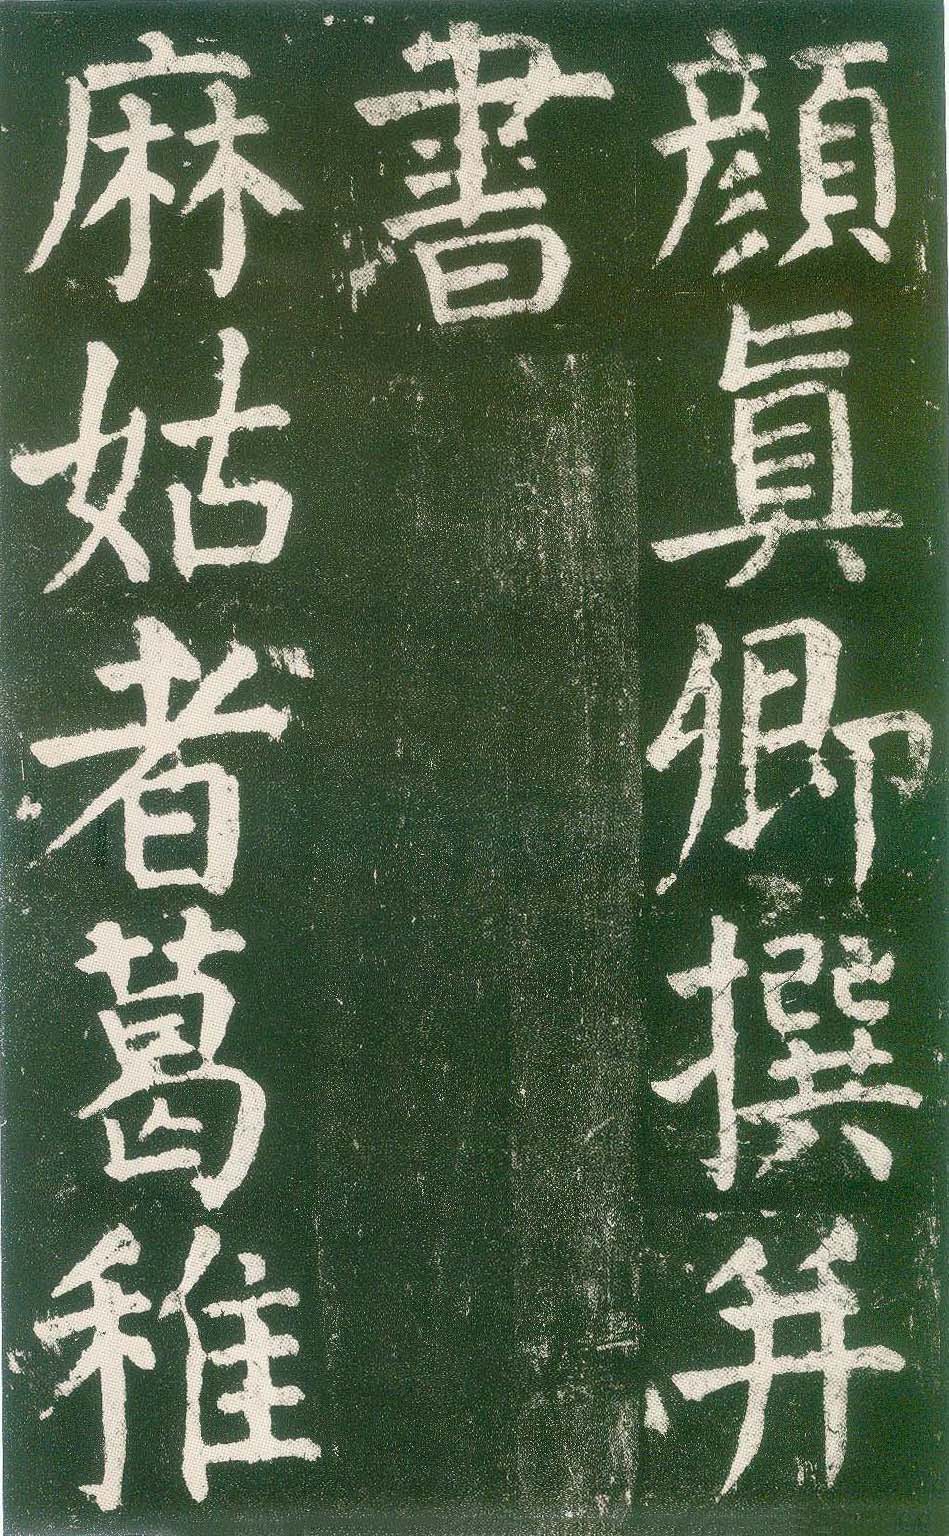 顔眞卿撰并
書
麻姑者葛稚